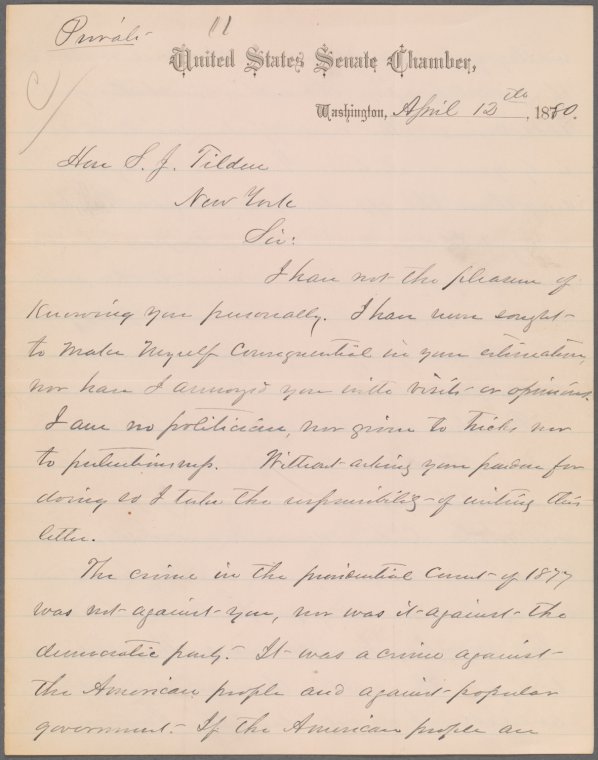 Private
United States Senate Chamber,
Washington, April 12th, 1880.
Hon S. J. Tilden
New York
Sir:
I have not the pleasure of
Knowing you personally. I have never sought
to make myself consequential in your estimation,
nor have I annoyed you with visits or opinions.
I am no politician, nor given to tricks nor
to pretentiousness. Without asking your pardon for
doing so I take the responsibility of writing this
letter.
The crime in the presidential count of 1877
was not against you, nor was it against the
democratic party. It was a crime against
the American people and against popular
government. If the American people are